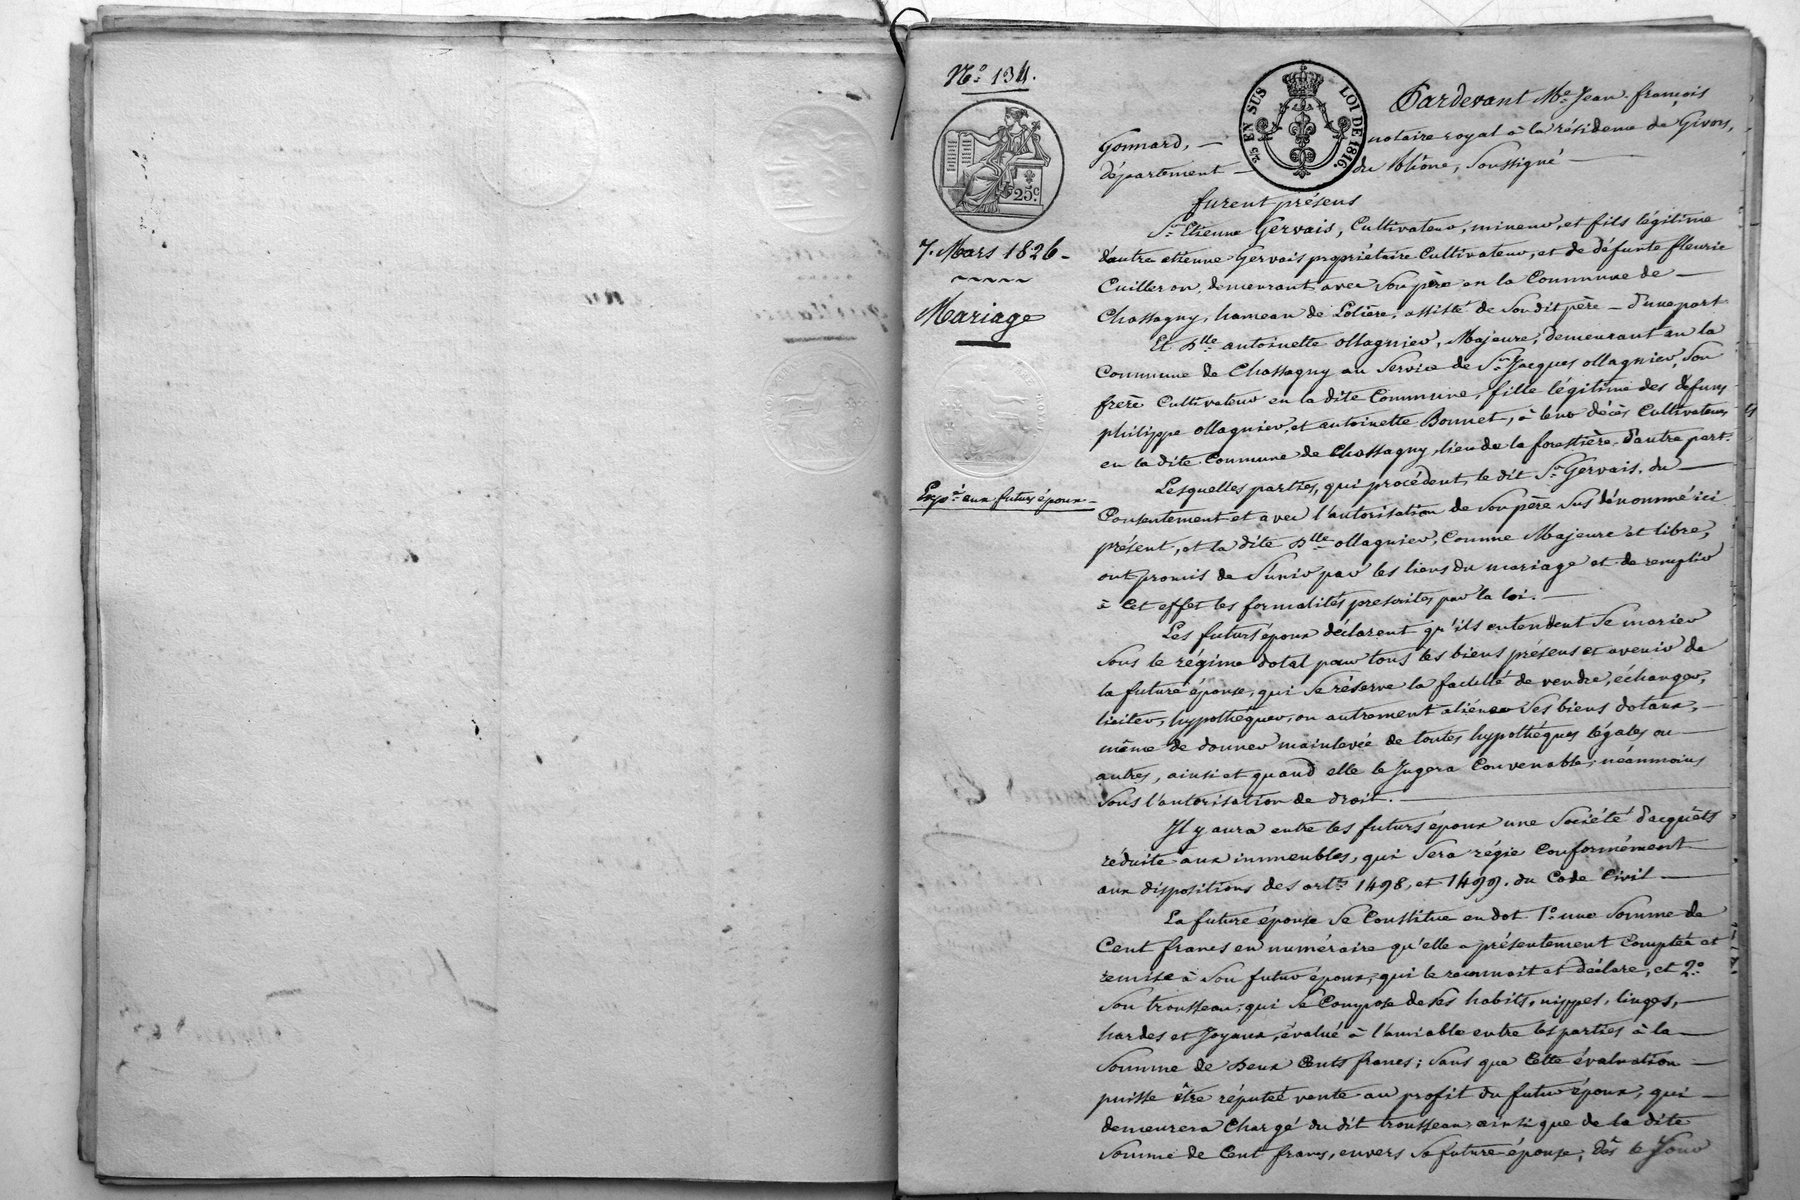 N.º 134.
25.c
7. Mars 1826 -
Mariage
Exp.é aux futurs époux -
2/5 EN SUS
LOI DE 1816.
Pardevant Me. Jean-françois
Gonnard, — notaire royal à la résidence de Givors,
département — du Rhône, soussigné —
furent présens
Sr. Etienne Gervais, Cultivateur, mineur, et fils légitime
d'autre etienne Gervais propriétaire Cultivateur, et de défunte fleurie
Cuilleron, demeurant avec son père en la Commune de —
Chassagny, hameau de Lolière, assisté de son dit père — d'une part.
Et Dlle. antoinette ollagnier, Majeure, demeurant en la
Commune de Chassagny au Service de Sr. Jacques ollagnier, son
frère Cultivateur en la dite Commune, fille légitime des défunts
philippe ollagnier, et antoinette Bonnet, à leur décès Cultivateurs
en la dite Commune de Chassagny, lieu de la forestière, d'autre part.
Lesquelles parties, qui procédent, le dit Sr. Gervais, du —
Consentement et avec l'autorisation de son père sus dénommé ici
présent, et la dite Dlle. ollagnier, Comme Majeure et libre,
ont promis de s'unir par les liens du mariage et de remplir
à cet effet les formalités prescrites par la loi. —
Les futurs époux déclarent qu'ils entendent se marier
sous le régime dotal pour tous les biens présens et avenir de
la future épouse, qui se réserve la faculté de vendre, échanger,
liciter, hypothéquer, ou autrement aliéner ses biens dotaux, —
même de donner mainlevée de toutes hypothéques légales ou —
autres, ainsi et quand elle le Jugera Convenable, néanmoins
sous l'autorisation de droit. —
Il y aura entre les futurs époux une société d'acquêts
réduite aux immeubles, qui sera régie Conformément —
aux dispositions des arts. 1498, et 1499. du Code Civil —
La future épouse se Constitue en dot 1.º une somme de
Cent francs en numéraire qu'elle a présentement Comptée et
remise à son futur époux, qui le reconnait et déclare, et 2.º
son trousseau, qui se Compose de ses habits, nippes, linges, —
hardes et Joyaux, évalué à l'amiable entre les parties à la —
somme de Deux Cents francs; sans que cette évaluation —
puisse être réputée vente au profit du futur époux, qui —
demeurera chargé du dit trousseau, ainsi que de la dite
somme de Cent francs, envers sa future épouse, dès le Jour